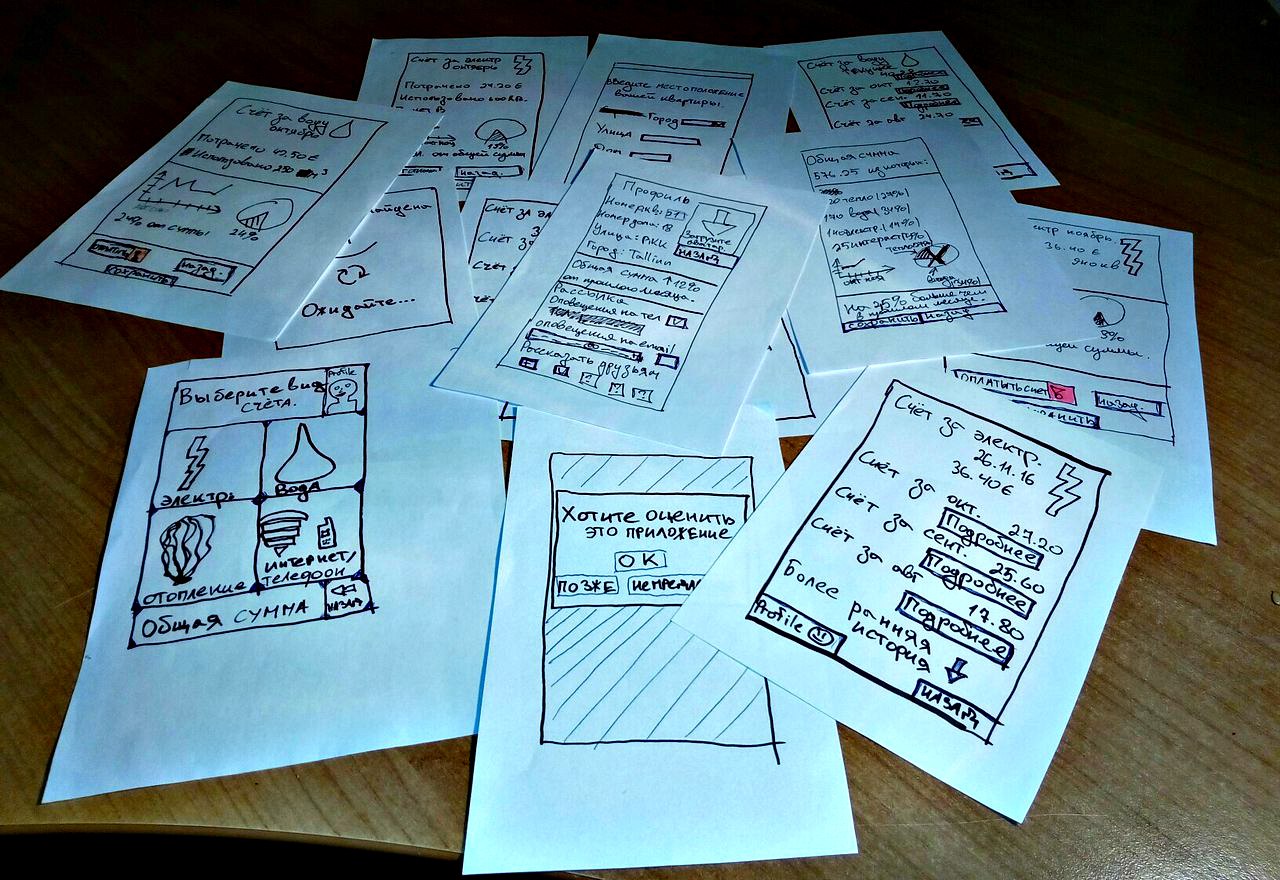 Счёт за электр
октябрь
Потрачено 24.20 €
Использовано
13%
от общей суммы
назад.
Введите местоположение
вашей квартиры.
Город
Улица
Дом
Счёт за воду
Подробнее
Счёт за окт
Счёт за сен. 11.90
Подробнее
Счёт за авг 24.30
Счёт за воду
октябрь
Потрачено 42,50 €
Использовано 250
24% от суммы
24%
назад.
сохранить
Ожидайте...
Счёт за эл
Счёт з
Счёт
Профиль
Номер кв: 57
Номер дома: 18
Улица: РКК
Город: Tallinn
Загрузите
аватар
НАЗАД
Общая сумма ↑12%
от прошлого месяца.
Рассылка
Оповещения на тел
оповещения на email
Рассказать друзьям
Общая сумма
576.25 из которых:
тепло (27%)
вода (34%)
электр. (11%)
25 интернет
теплота
вода
(34%)
На 25% больше чем
в прошлом месяце.
сохранить назад
ектр ноябрь.
36.40 €
3%
щей суммы.
ОПЛАТИТЬ СЧЕТ
назад.
ХРАНИТЬ
Выберите вид
счёта.
Profile
ЭЛЕКТРЬ
ВОДА
ОТОПЛЕНИЕ
ИНТЕРНЕТ/
ТЕЛЕФОН
Общая СУММА
НАЗАД
Хотите оценить
это приложение
OK
ПОЗЖЕ
Счёт за электр.
26.11.16
36.40€
Счёт за окт. 27.20
Подробнее
Счёт за сент. 25.60
Подробнее
Счёт за авг 17.80
Подробнее
Более ранняя
история
Profile
НАЗАД